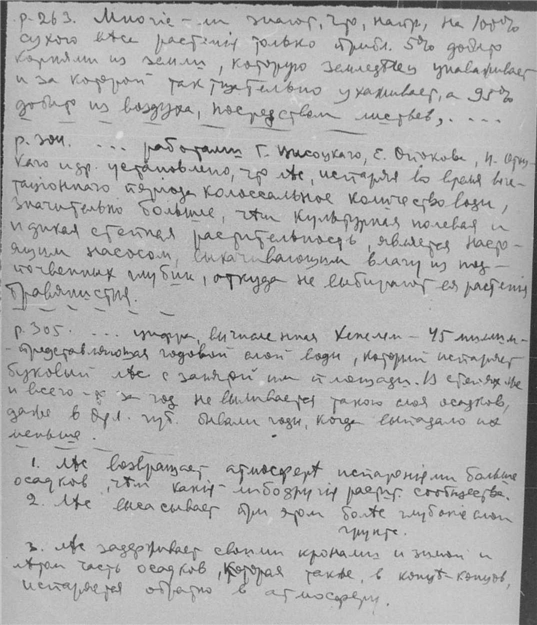 p. 263. Многіе-ли знаютъ, что, напр., на 100%
сухого вѣса растенія только прибл. 5% добыто
корнями из земли, которую земледѣлец унаваживает
и за которой так тщательно ухаживает, а 95%
добыто из воздуха, посредством листьев, . . . .
p. 304. . . . работами Г. Высоцкаго, Е. Оппокова, П. Отоц-
каго и др. установлено, что лѣс, испаряя во время веге-
таціоннаго періода колоссальное количество воды,
значительно больше, чѣм культурная полевая и
и дикая степная растительность, является насто-
ящим насосом, выкачивающим влагу из под-
почвенных глубин, откуда не выбирают ея растенія
травянистыя.
p. 305. . . . цифра, вычисленная Хенелем - 45 миллим-
- представляющая годовой слой воды, который испаряет
буковый лѣс с занятой им площади. В степях же
и всего-то за год не выливается такого слоя осадков,
даже в губ. бывали годы, когда выпадало их
меньше.
1. Лѣс возвращает атмосферѣ испареніями больше
осадков, чѣм какія-либо другія растит. сообщества.
2. Лѣс высасывает при этом болѣе глубокіе слои
грунта.
3. Лѣс задерживает своими кронами и зимой и
лѣтом часть осадков, которая также, в концѣ-концов,
испаряется обратно в атмосферу.